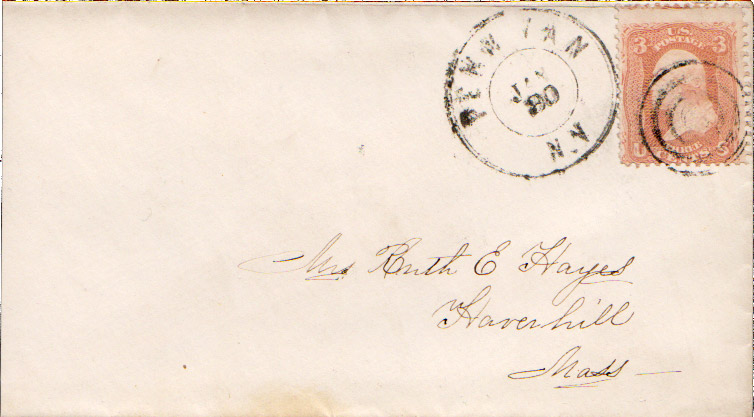 PENN YAN
JAN
30
N.Y.
3 U.S. 3
POSTAGE
THREE
CENTS
Mrs Ruth E Hayes
Haverhill
Mass